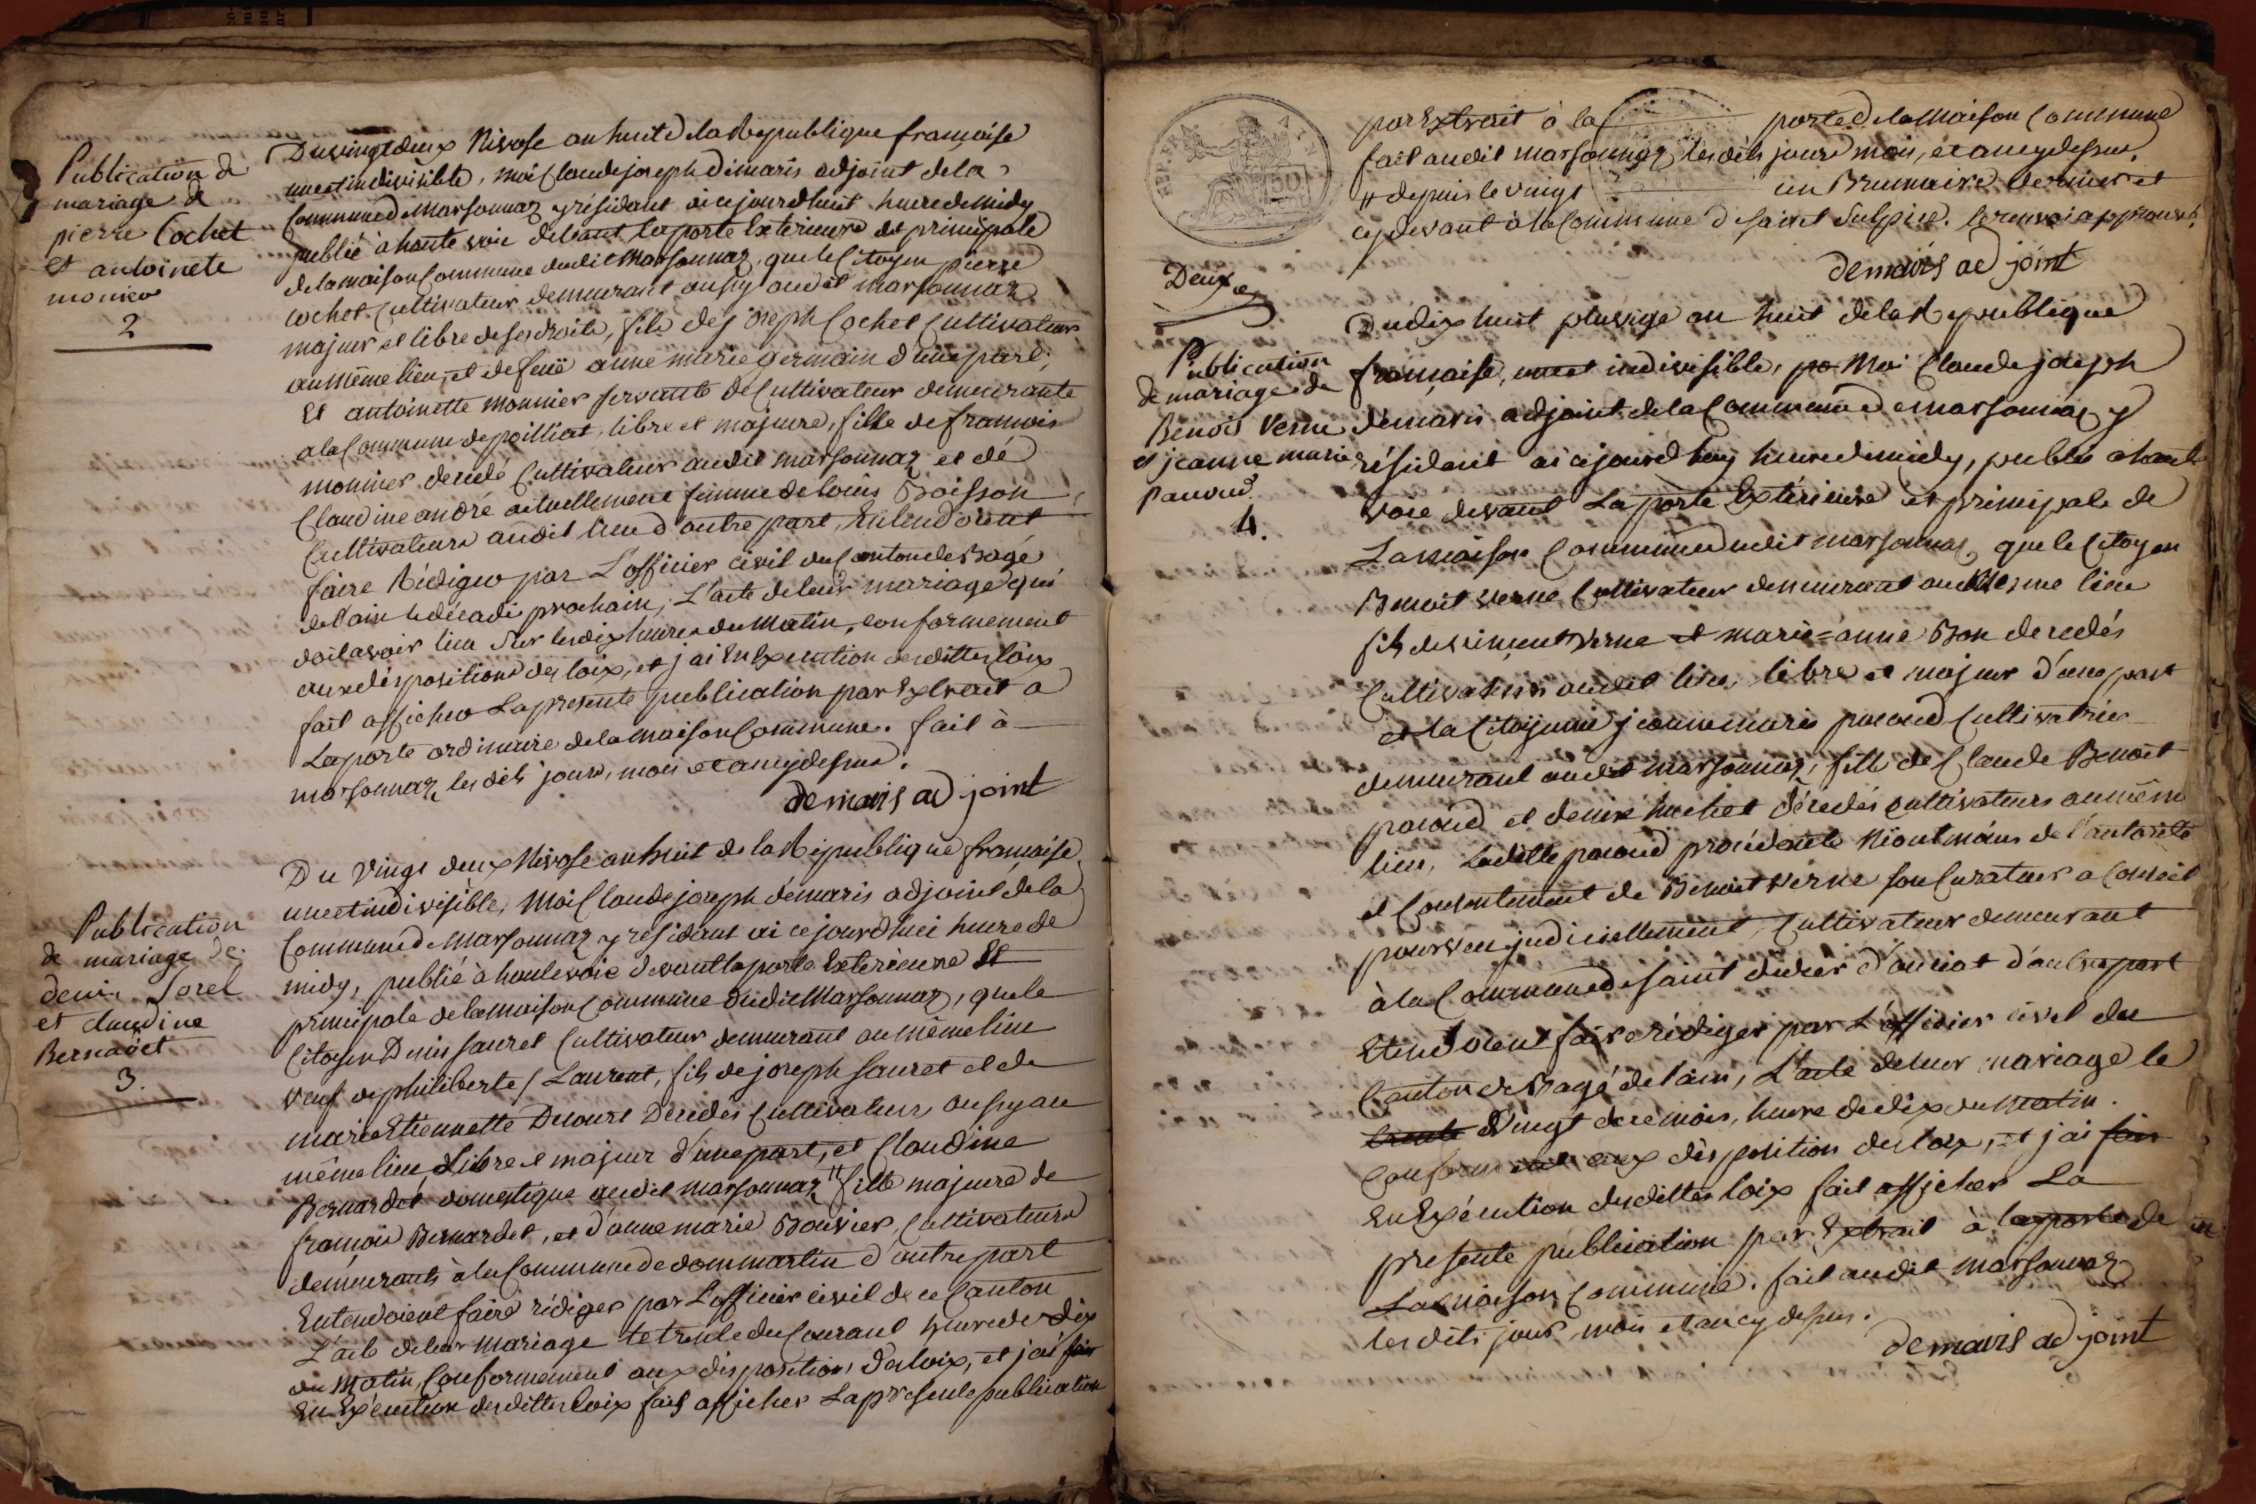 Publication de
mariage de
pierre Cochet
et antoinete
monier
2
Du vingt deux Nivose an huit de la Republique françoise
une et indivisible, moi Claude joseph demaris adjoint de la
Commune de Marsonnaz y résidant ai cejourdhuit heure de midy
publié à haute voie devant la porte Exterieure et principale
de la maison Commune dudit Marsonnaz, que le Citoyen pierre
Cochet Cultivateur demeurant aussy audit marsonnaz
majeur et libre de ses droits, fils de joseph Cochet Cultivateur
au même lieu, et de feüe anne marie germain d'une part;
Et antoinette monnier servante de Cultivateur demeurante
a la Commune de poilliat, libre et majeure, fille de françois
monnier décédé Cultivateur audit marsonnaz et de
Claudine andré actuellement femme de louis Boisson
Cultivateurs audit lieu d'autre part, Entendoient
faire Rédiger par L'officier civil du Canton de Bagé
de l'ain le décadi prochain, L'acte de leur mariage qui
doit avoir lieu sur les dix heures du Matin, conformement
aux dispositions des loix, et j'ai En Execution desdittes loix
fait afficher La presente publication par Extrait a
La porte ordinaire de la maison Commune. fait à
marsonnaz les dits jours, mois et an cy dessus.
demaris adjoint
Publication
de mariage de
denis Sorel
et claudine
Bernadet
3.
Du Vingt deux Nivose an huit de la République françoise,
une et indivisible, Moi Claude joseph démaris adjoint de la
Commune de Marsonnaz y residant ai ce jourdhui heure de
midy, publié à haute voie devant la porte Exterieure Et
principale de la maison Commune dudit Marsonnaz, que le
Citoyen Denis sauret Cultivateur demeurant au même lieu
veuf de philiberte Laurent, fils de joseph sauret et de
marie Etiennette Ducourt Décédés Cultivateurs, aussy au
même lieu, Libre et majeur d'une part, et Claudine
Bernardet domestique audit marsonnaz " fille majeure de
françois Bernardet, et d'anne marie Bouvier, Cultivateurs
demeurants à la Commune de dommartin d'autre part
Entendoient faire rédiger par L'officier civil de ce Canton
L'acte de leur mariage le trente du Courant heure de dix
du matin, Conformement aux dispositions des loix, et j'ai fair
En Exécution desdittes loix fait afficher La presente publication
REP. FRA. AIN.
50
par Extrait à la porte de la Maison Commune
fait audit marsonnaz les dits jours mois, et an cy dessus.
" depuis le vingt un Brumaire dernier et
cy devant à la Commune de saint Sulpice. le renvoi approuvé.
demaris adjoint
Deux
Publication
de mariage de
Benois Verne
et jeanne marie
pauoud
4.
Du dix huit pluviose an huit de la Republique
françaisse, une et indivisible, po Moi Claude joseph
demaris adjoint de la Commune de marsonnaz y
résidant ai cejourdhuy heure de midy, publié a haute
voie devant La porte Extérieure et principale de
La maison Commune dudit marsonnas, que le Citoyen
Benoit Verne Cultivateur demeurant au Mesme lieu
fils de vincent Verne et marie=anne Bon décédés
Cultivateurs audit lieu, libre et majeur d'une part
et la Citoyenne jeanne marie pauoud Cultivatrice
demeurant audit marsonnaz, fille de Claude Benoit
pauoud et denise huchet décédés cultivateurs au même
lieu, Laditte pauoud procédante Néontmoins de l'autorité
et Consentement de Benoit Verne son Curateur a Conseil
pourveu judiciellement, Cultivateur demeurant
à la Commune de saint didier d'aussiat d'autre part
Entendoient faire rédiger par L'officier civil du
Canton de Bagé de lain, L'acte de leur mariage le
trente Vingt de ce mois, heure de dix du Matin.
Conformement aux disposition des loix, et j'ai fair
En Exécution desdittes loix fait afficher La
presente publication par Extrait à la porte de
La maison Commune. fait audit Marsonnaz
les dits jours, mois et an cy dessus.
demaris adjoint